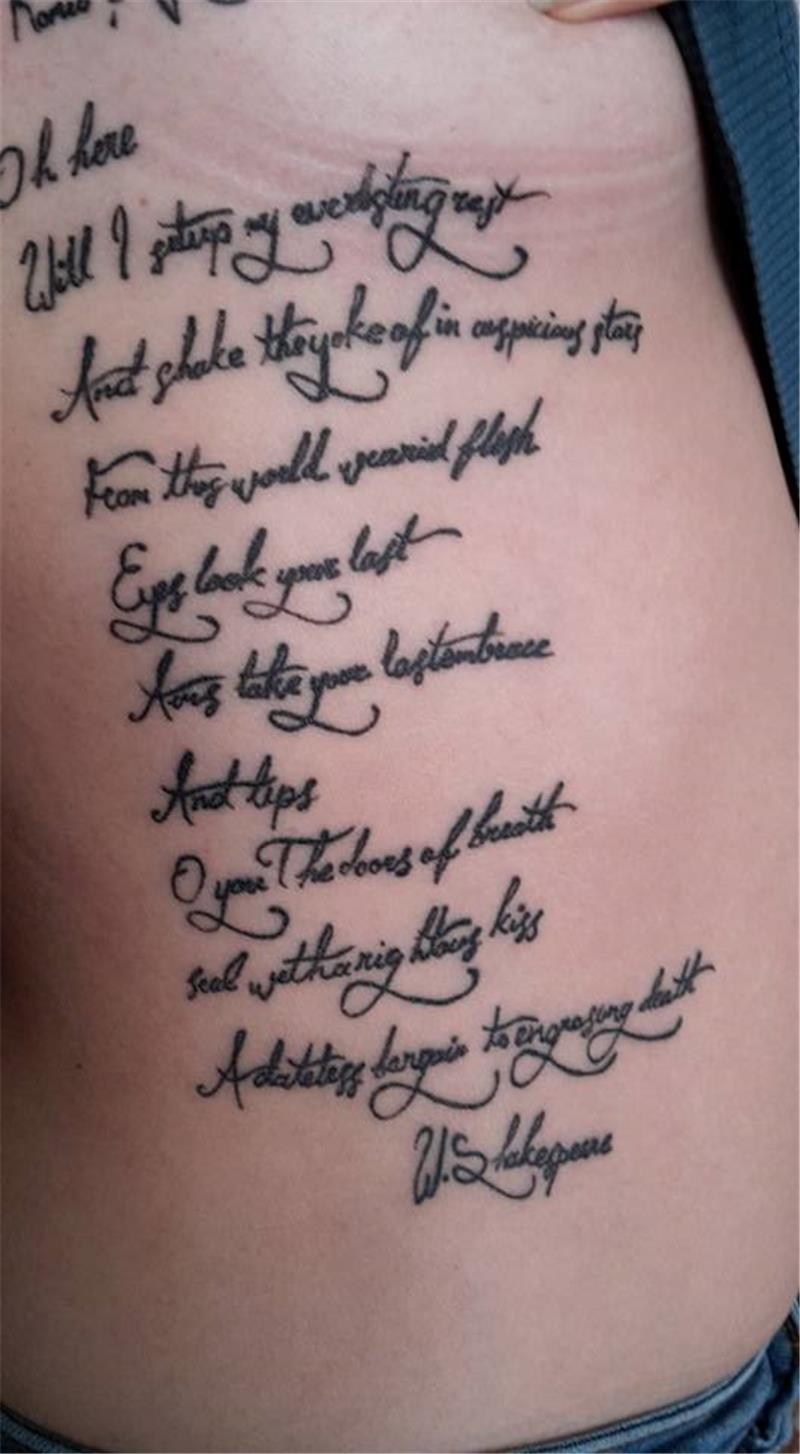 Romeo
Oh here
Will I setup my everlasting rest
And shake the yoke of in auspicious stars
From this world wearied flesh
Eyes look your last
Arms take your last embrace
And lips
O you The doors of breath
seal with a righteous kiss
A dateless bargain to engrosing death
W. Shakespeare